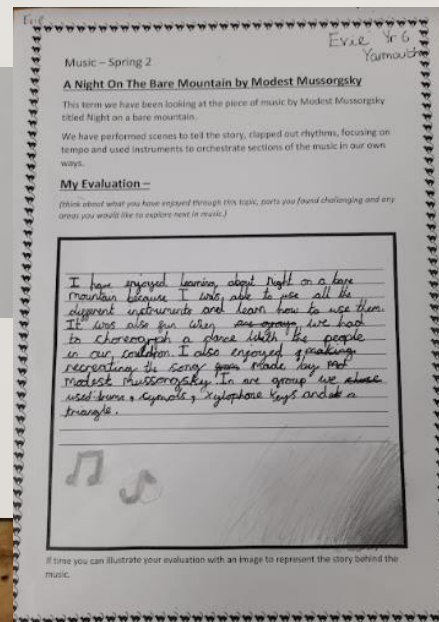 Evie
Evie Yr 6
Yarmouth
Music – Spring 2
A Night On The Bare Mountain by Modest Mussorgsky
This term we have been looking at the piece of music by Modest Mussorgsky
titled Night on a bare mountain.
We have performed scenes to tell the story, clapped out rhythms, focusing on
tempo and used instruments to orchestrate sections of the music in our own
ways.
My Evaluation –
(think about what you have enjoyed through this topic, parts you found challenging and any
areas you would like to explore next in music.)
I have enjoyed learning about Night on a bare
mountain because I was able to use all the
different instruments and learn how to use them.
It was also fun when we had
to choreograph a dance with the people
in our couldron. I also enjoyed making
recreating the song made by mod
modest mussorgsky. In are group we chose
used drums, cymols, xylophone keys and a
triangle.
If time you can illustrate your evaluation with an image to represent the story behind the
music.